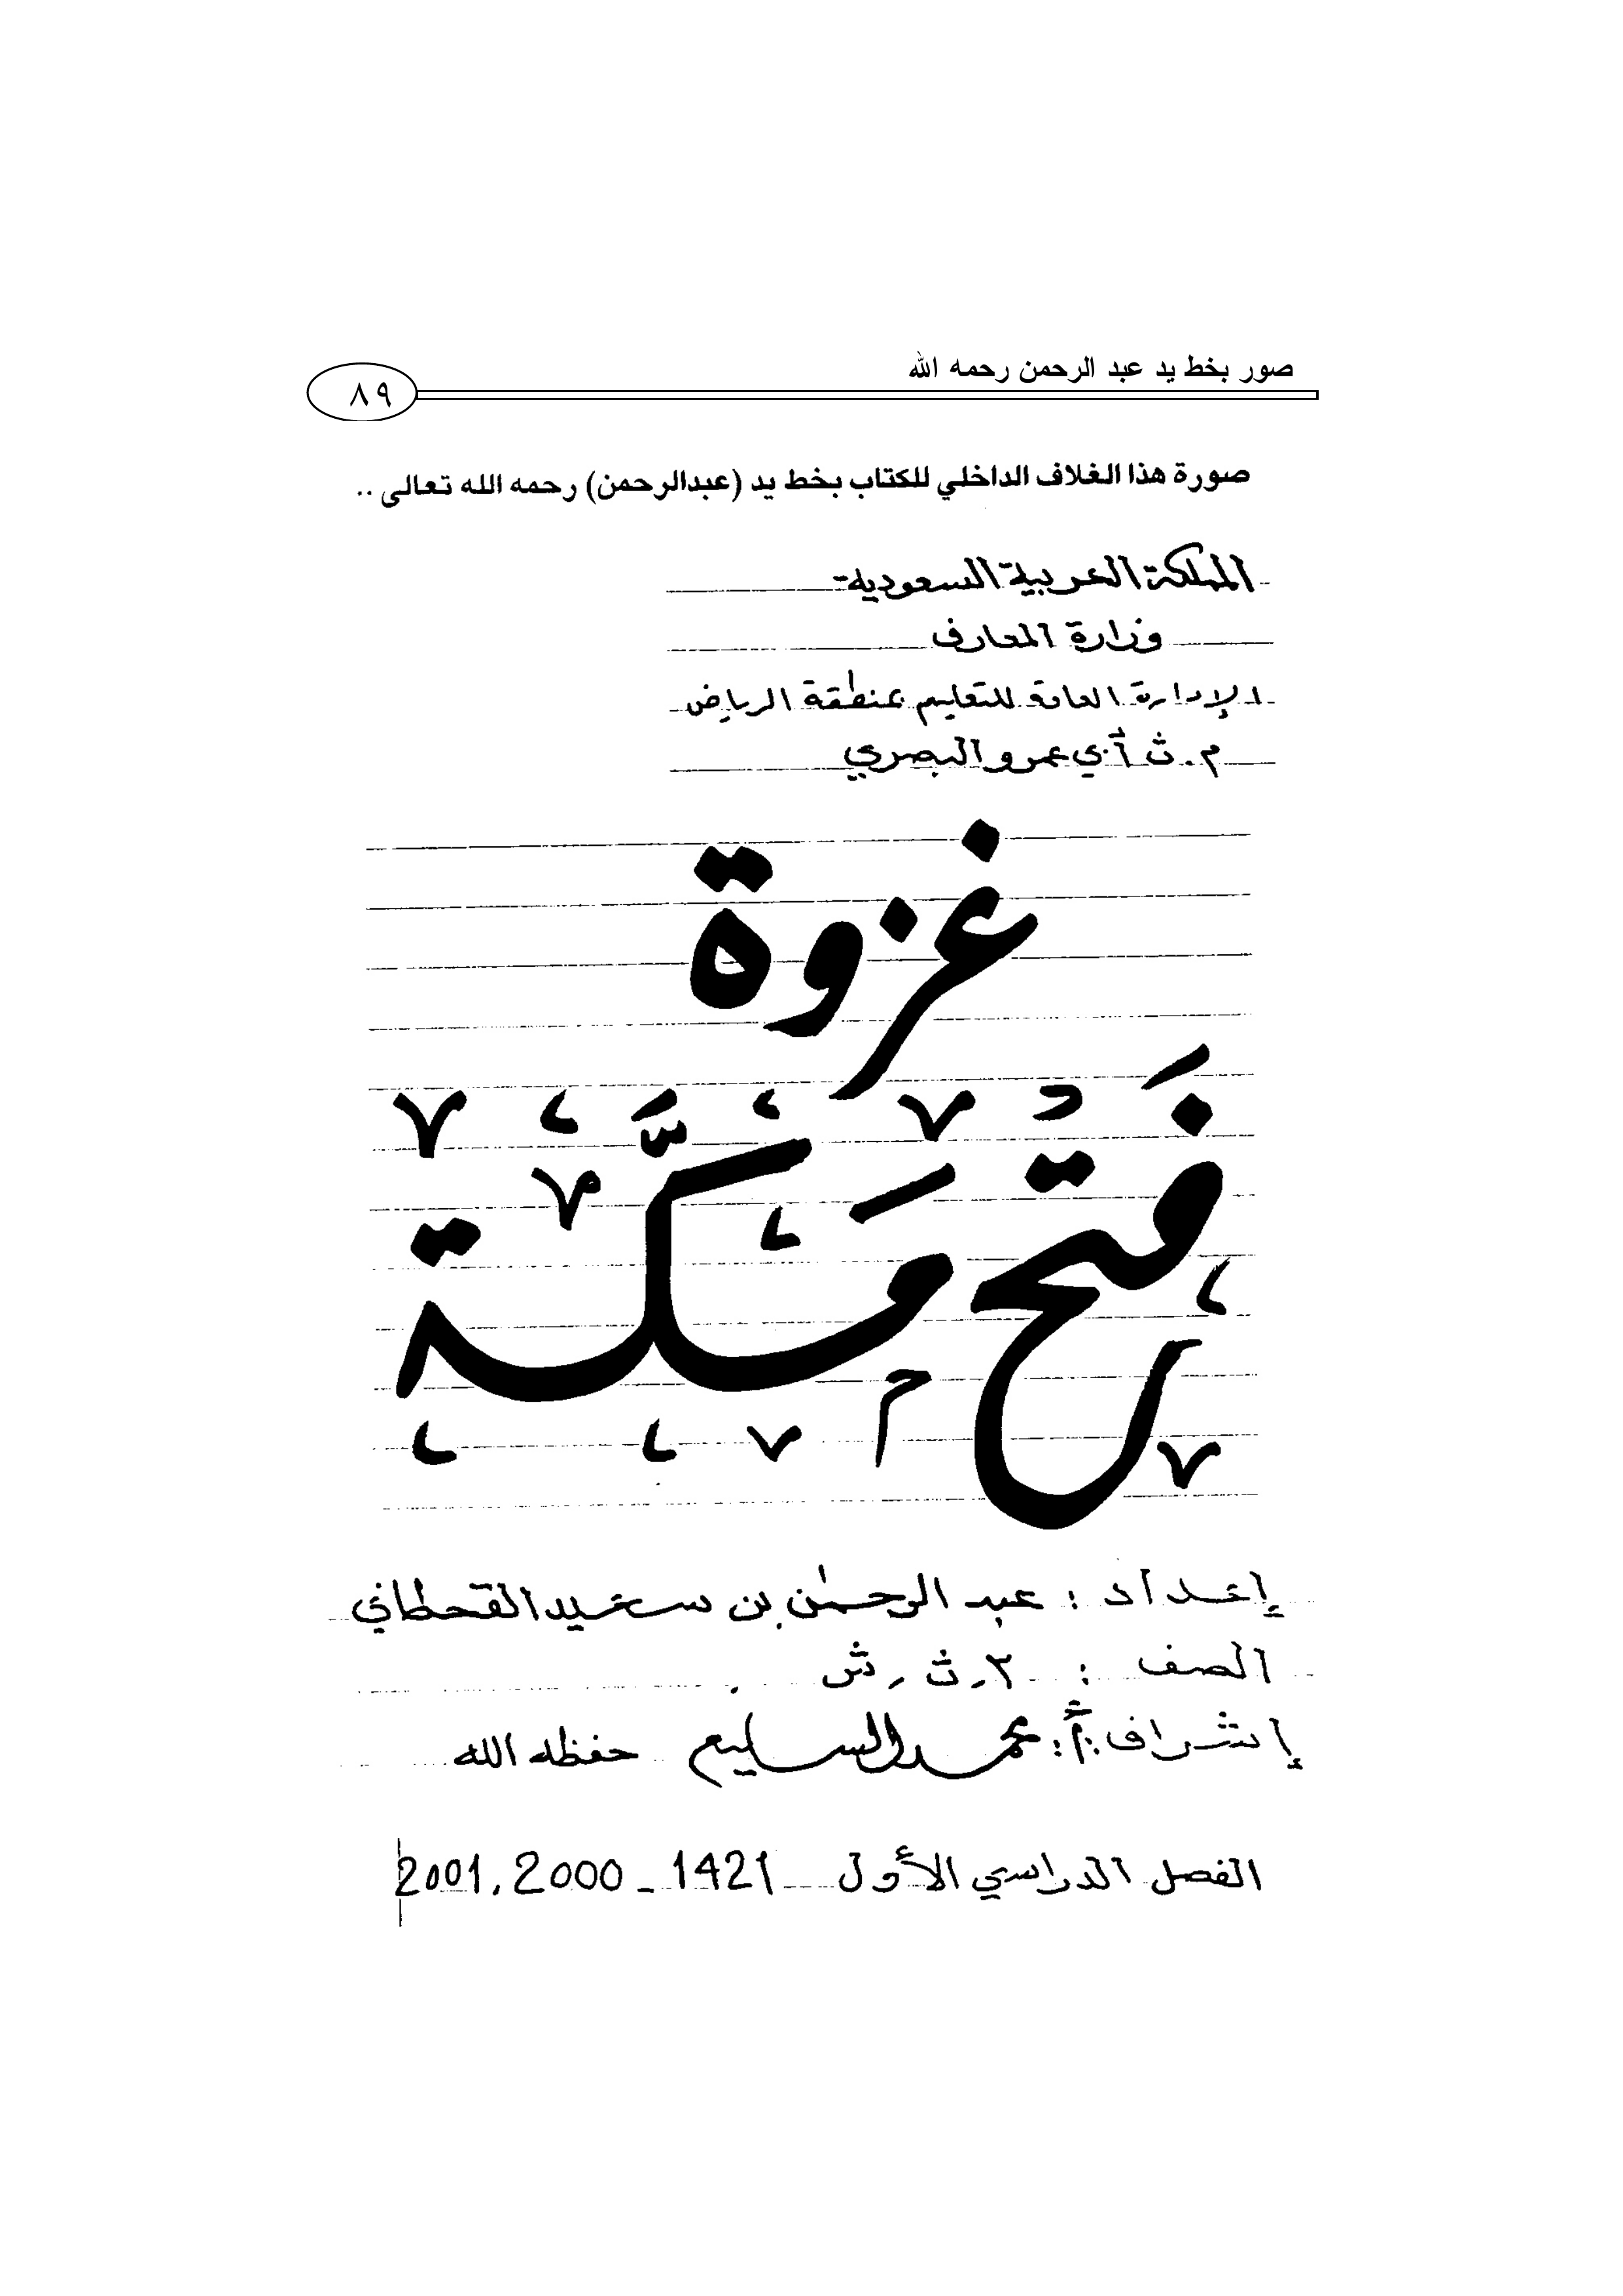 صور بخط يد عبد الرحمن رحمه الله
٨٩
صورة هذا الغلاف الداخلي للكتاب بخط يد (عبدالرحمن) رحمه الله تعالى ..
المملكة العربية السعودية
وزارة المعارف
الإدارة العامة للتعليم بمنطقة الرياض
م. ث أبي عمرو البصري
غزوة
فَتح مَكَّة
إعداد : عبد الرحمٰن بن سعيد القحطاني
الصف : ٣. ث. ش
إشراف أ: محمد السليم حفظه الله
الفصل الدراسي الأول 1421 _ 2000 . 2001